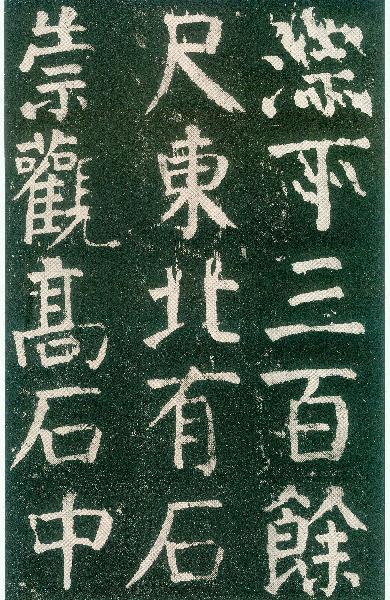 淙下三百餘
尺東北有石
崇觀高石中